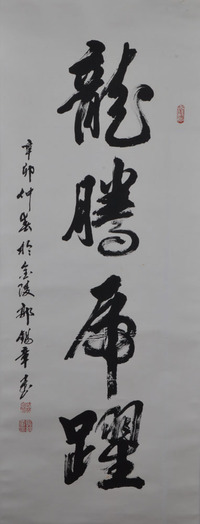 龍騰虎躍
辛卯仲春於金陵郝錫章書